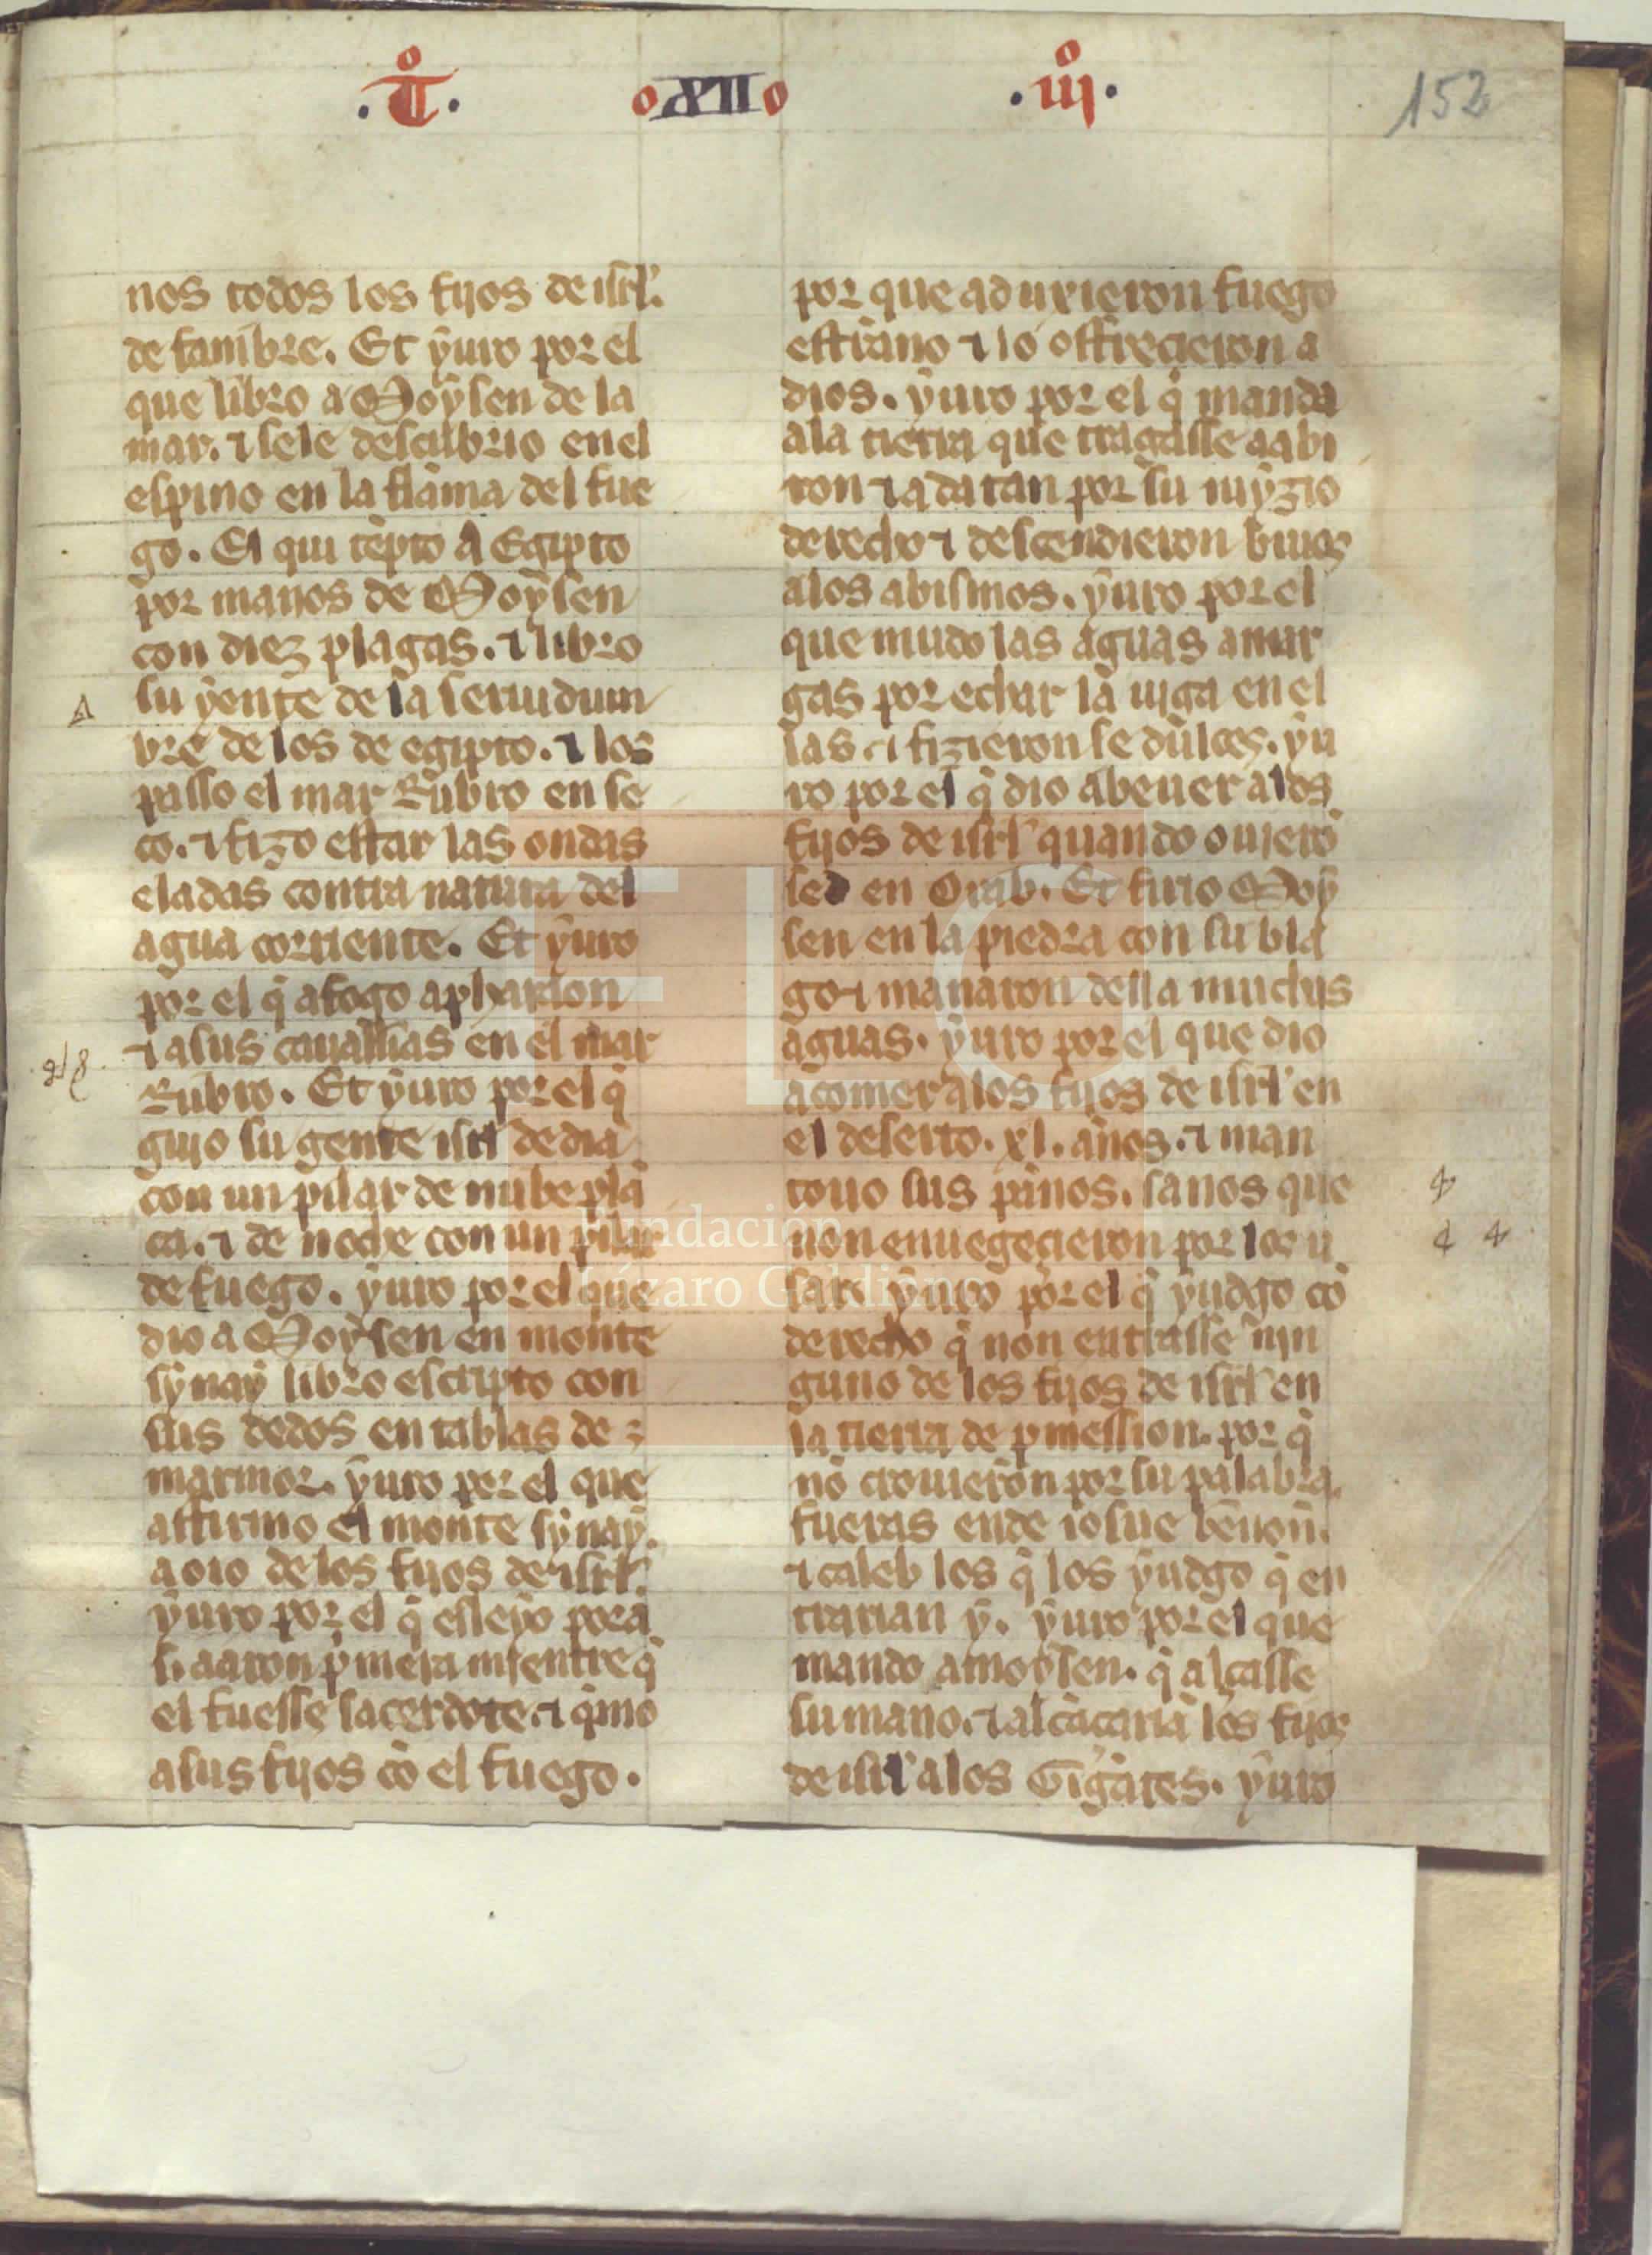 .T̊. oXIIo .iij̊.
152
nos todos los fijos de isrl'.
de fambre. Et ẏuro por el
que libro a Moẏsen de la
mar. ⁊ sele descubrio en el
espino en la flama del fue
go. El qui tẽpto a Egipto
por manos de Moẏsen
con diez plagas. ⁊ libro
su ẏente de la seruidum
bre de los de egipto. ⁊ los
passo el mar Rubro en se
co. ⁊ fizo estar las ondas
eladas contra natura del
agua corriente. Et ẏuro
por el q̇ afogo a pharaon
⁊ asus cauallias en el mar
Rubro. Et ẏuro por el q̇
guio su gente isrl' de dia
con un pilar de nube pla
ca. ⁊ de noche con un pilar
de fuego. ẏuro por el que
dio a Moẏsen en monte
sẏnaẏ libro escripto con
sus dedos en tablas de
marmor. ẏuro por el que
affirmo el monte sẏnaẏ.
a oio de los fijos de isrl'.
ẏuro por el q̇ esleẏo pora
si aaron ṗmera mientre q̇
el fuesse sacerdote. ⁊ q̇mo
asus fijos cõ el fuego.
por que aduxieron fuego
estrano ⁊ lo offrecieron a
dios. ẏuro por el q̇ manda
ala tierra que tragasse a abi
ron ⁊ a datan por su iuẏzio
derecho ⁊ descendieron biuos
alos abismos. ẏuro por el
que mudo las aguas amar
gas por echar la uiga en el
las. ⁊ fizieron se dulces. ẏu
ro por el q̇ dio abeuer alos
fijos de isrl' quando ouierõ
sed en Orab. Et firio Moẏ
sen en la piedra con su bla
go ⁊ manaron della muchas
aguas. ẏuro por el que dio
acomer alos fijos de isrl' en
el deserto. xl. años. ⁊ man
touo sus pãnos. sanos que
non enuegecieron por los u
sar. ẏuro por el q̇ ẏudgo cõ
derecho q̇ non entrasse nin
guno de los fijos de isrl' en
la tierra de ṗmession. por q̇
nõ crouieron por su palabra.
fueras ende iosue bẽnon.
⁊ caleb los q̇ los ẏudgo q̇ en
trarian ẏ. ẏuro por el que
mando a moẏsen. q̇ alçasse
su mano. ⁊ alcãçaria los fijos
de isrl' a los Gigãtes. ẏuro
Fundación
Lázaro Galdiano